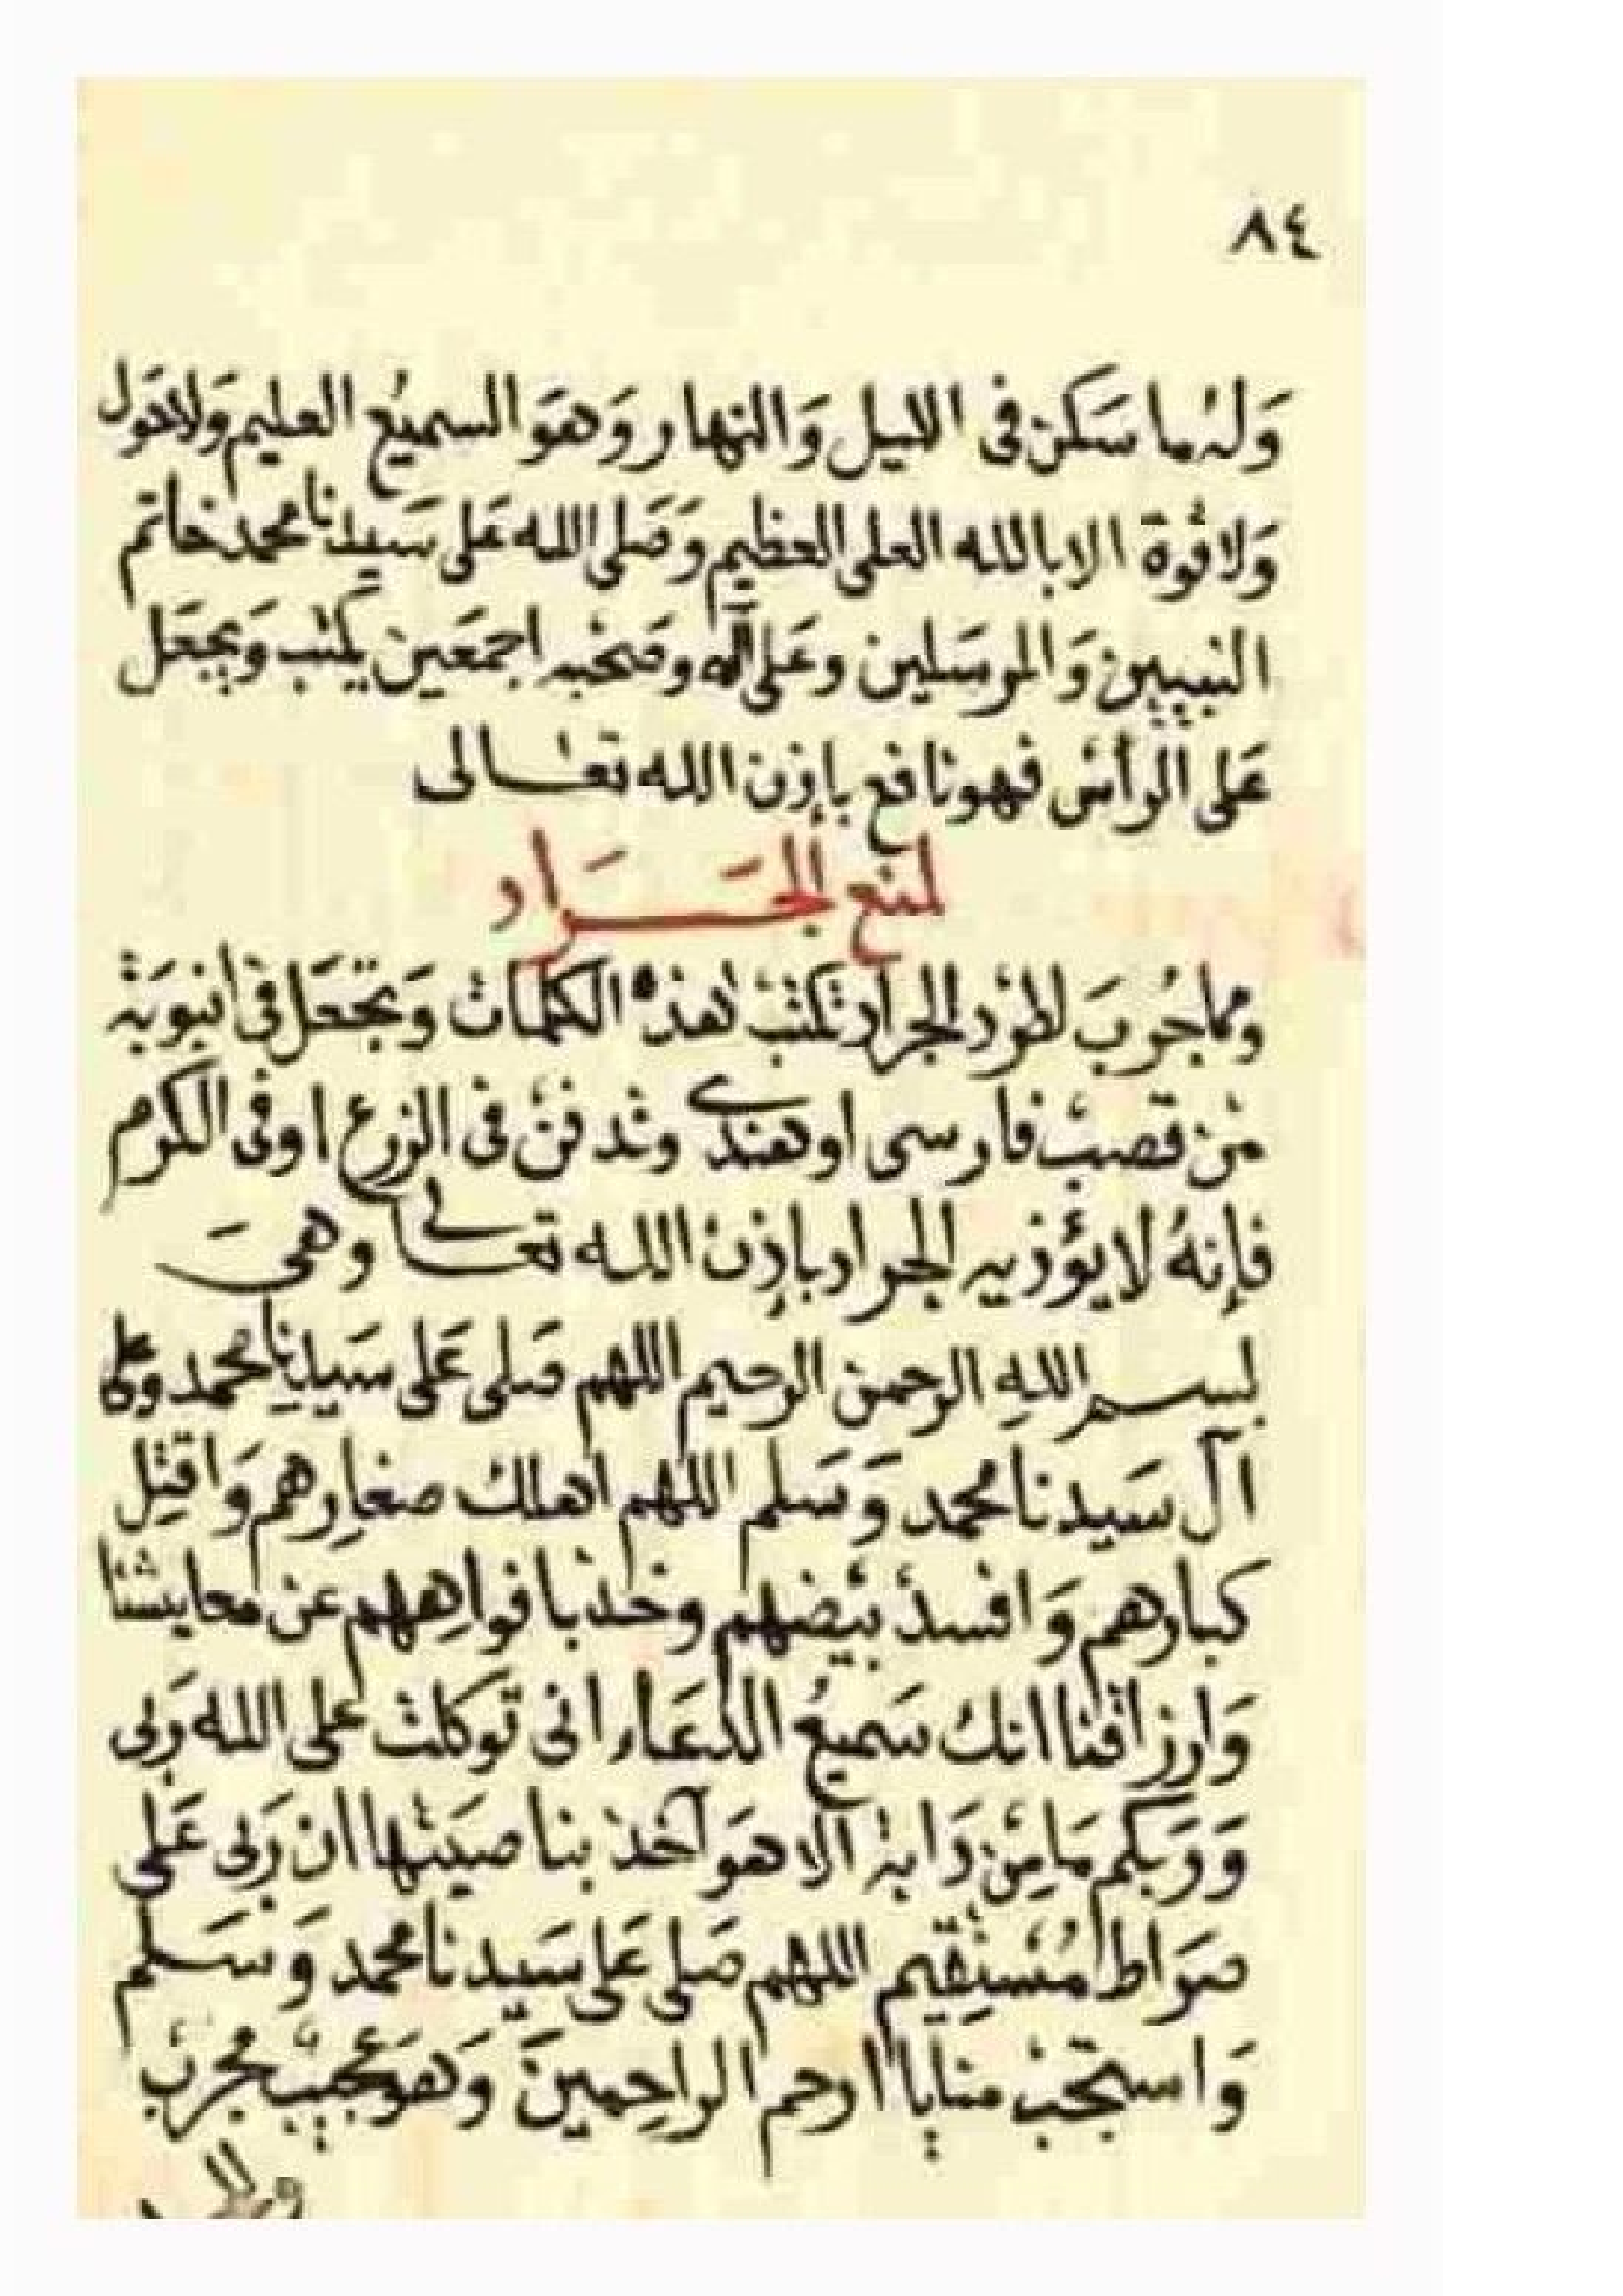 ٨٤
وَلَهُ ما سَكَن في الليل وَالنهار وَهوَ السميعُ العليم وَلاحَول
وَلا قوة الا بالله العلى العظيم وَصَلى الله عَلى سَيدنا محمد خاتم
النبيين وَالمرسَلين وعَلى آله وصَحْبه اجمَعين يكتب وَيجعَل
عَلى الرأس فهو نافع بإذن الله تعَالى
لمنع الجَرَاد
ومما جُرِبَ لطرْد الجراد تكتبْ هَذه الكلمات وَتجْعَل في أنبوبَة
مْن قصبْ فارسى او هندى وتدفنْ في الزرع او في الكرم
فإنهُ لا يؤذيه الجراد بإذن الله تعالى وهىَ
بسم اللهِ الرحمن الرحيم اللهم صَلى عَلى سَيدِنا محمد وعلى
آل سَيدنا محمد وَسَلم اللهم اهلك صغارِهم وَاقتِل
كبارهم وَافسدْ بيْضهم وخذ بافواهِهم عن معايشنا
وَارزاقنا انك سَميعُ الدعَاء انى توَكلت على الله رَبى
وَرَبكم مَا مِنْ دَابة الا هوَ آخذ بناصيَتها ان رَبى عَلى
صرَاط مُسْتقِيم اللهم صَلى عَلى سَيدنا محمد وَسَلم
وَاستجب منا يا ارحم الراحِمينَ وَهوَ عجيب مجربْ